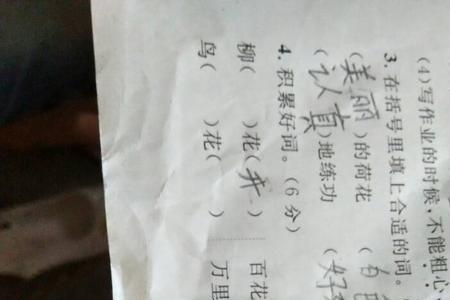 (4)写作业的时候,不能粗心
3. 在括号里填上合适的词。
(美丽)的荷花 (
(认真)地练功 (好
4. 积累好词。(6分)
柳( )花(开) 百花
鸟( )花( ) 万里